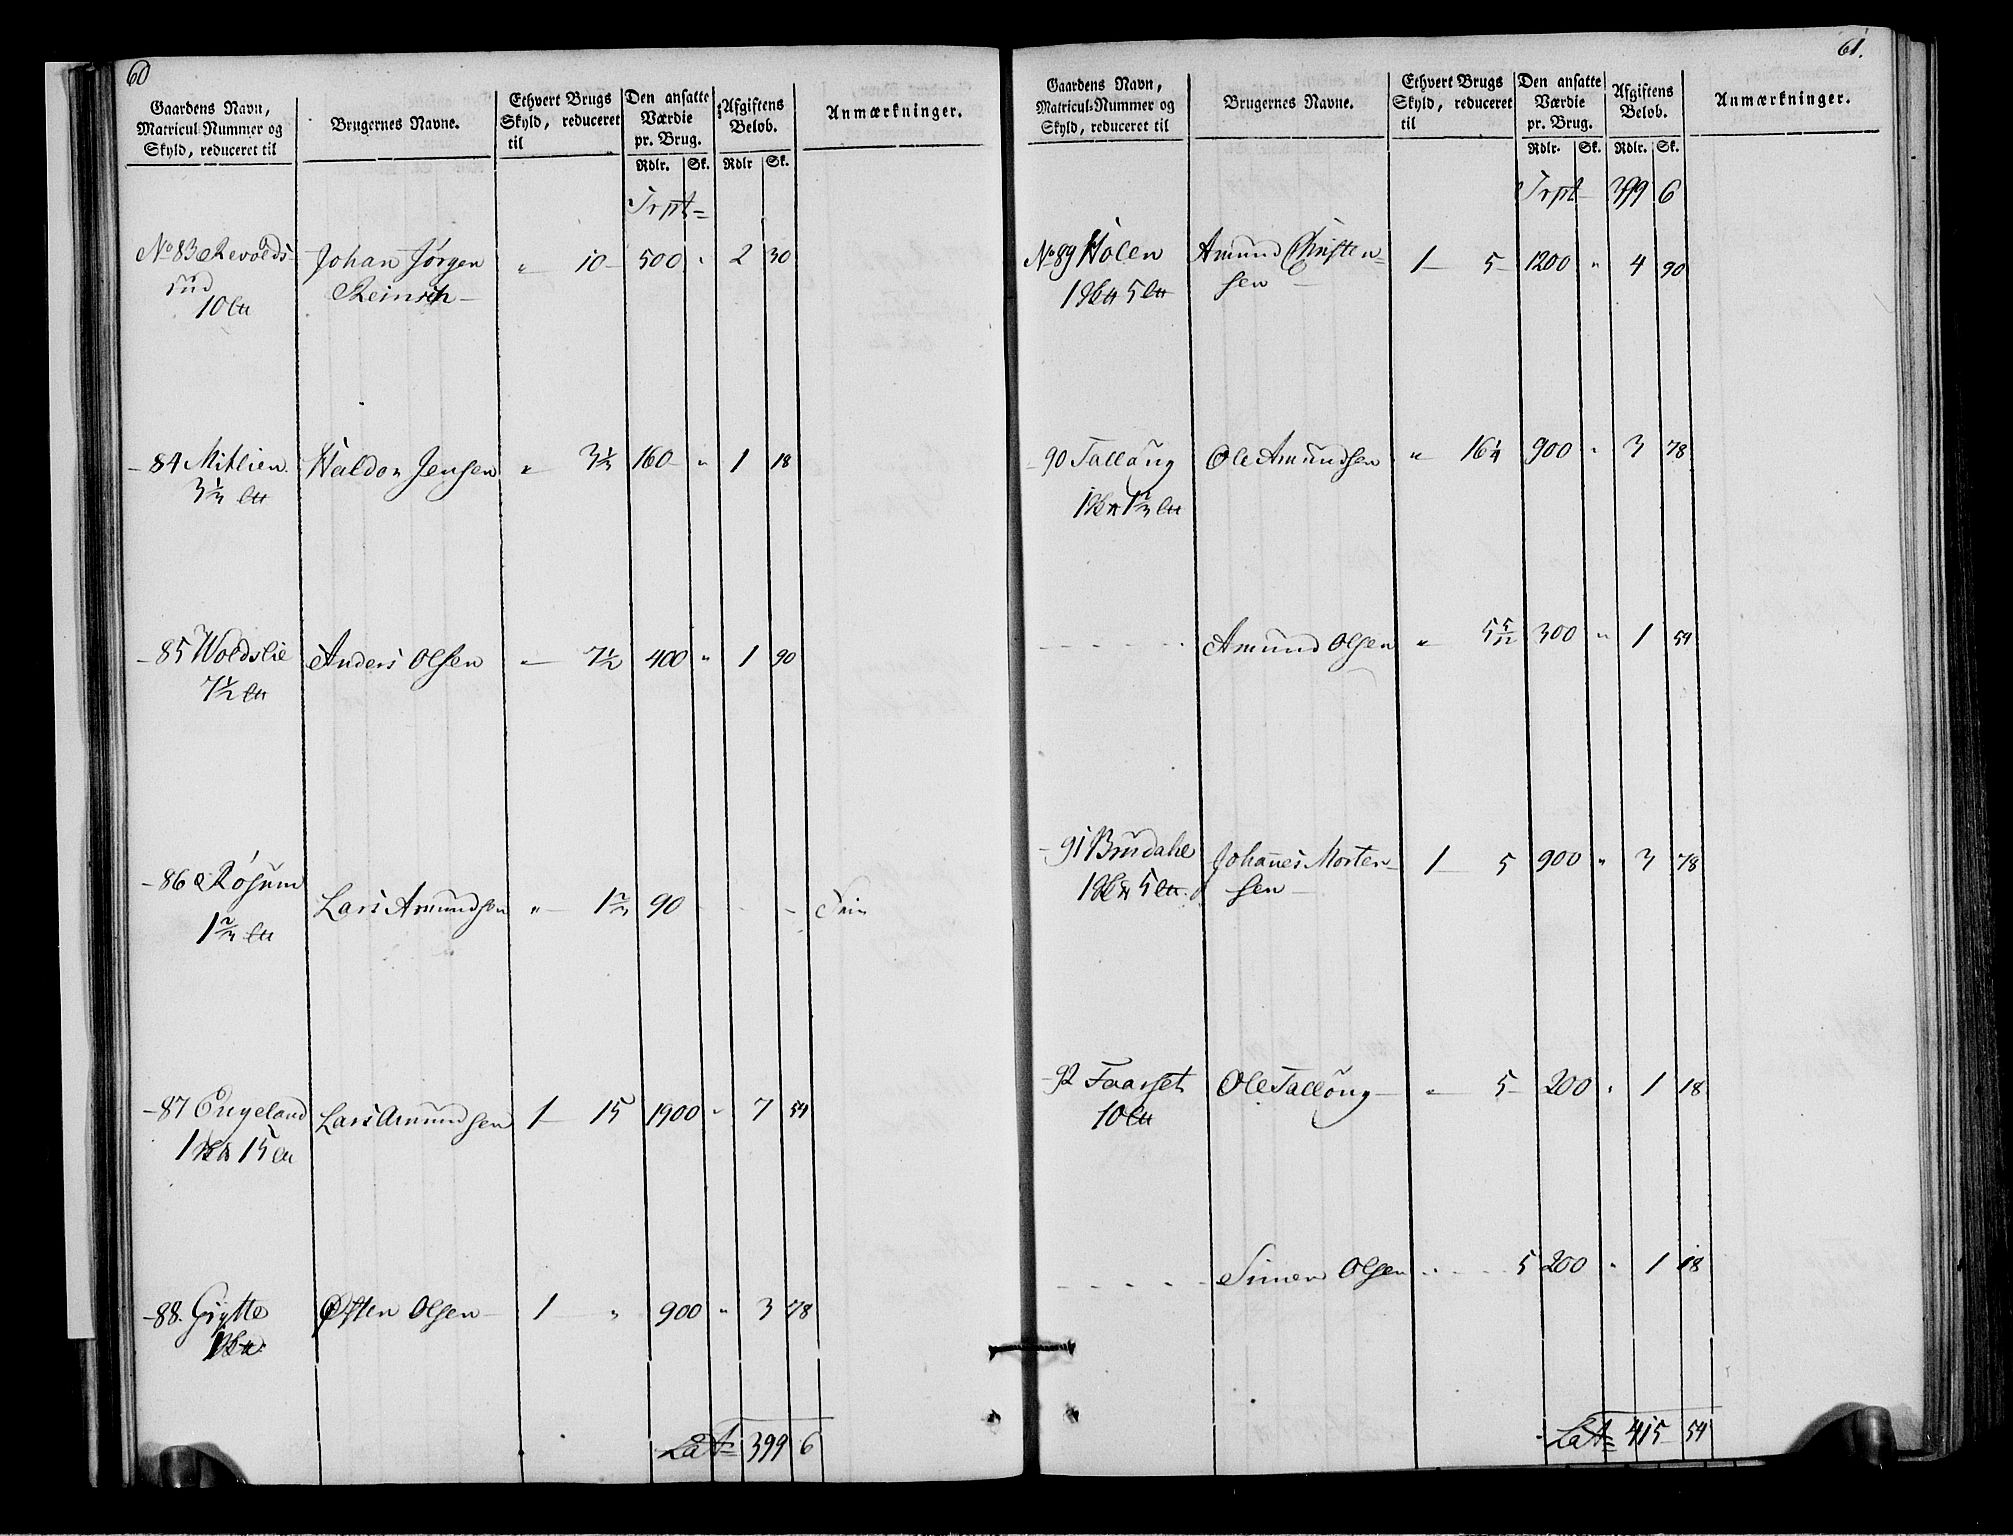 60
Gaardens Navn,
Matricul-Nummer og
Skyld, reduceret til
Brugernes Navne.
Ethvert Brugs
Skyld, reduceret
til
Den ansatte
Værdie
pr. Brug.
Rdlr. Sk.
Afgiftens
Beløb.
Rdlr Sk.
Anmærkninger.
Trpt=
No 83 Revolds- Johan Jørgen „ 10 500 „ 2 30
rud Reinsch
10
84 Mitlien Haldor Jensen „ 3 1/3 160 „ 1 18
3 1/3
85 Woldslie Anders Olsen „ 7 1/2 400 „ 1 90
7 1/2
86 Røsum Lars Amundsen „ 1 2/3 90 - - Frie
1 2/3
87 Engeland Lars Amundsen 1 15 1900 „ 7 54
1 15
88. Gytte Østen Olsen 1 „ 900 „ 3 78
1
Lat= 399 6
61.
Gaardens Navn,
Matricul-Nummer og
Skyld, reduceret til
Brugernes Navne.
Ethvert Brugs
Skyld, reduceret
til
Den ansatte
Værdie
pr. Brug.
Rdlr. Sk.
Afgiftens
Beløb.
Rdlr. Sk.
Anmærkninger.
Trpt 399 6
No 89 Holen Amund Christen= 1 5 1200 „ 4 90
1 5 sen
90 Talløug Ole Amundsen „ 16 1/4 900 „ 3 78
1 1 2/3
- - - - Amund Olsen „ 5 5/12 300 „ 1 54
91 Brudahl Johannes Morten- 1 5 900 „ 3 78
1 5 sen
92 Faarset Ole Talløug „ 5 200 „ 1 18
10
- - - - - Simen Olsen „ 5 200 „ 1 18
Lat= 415 54